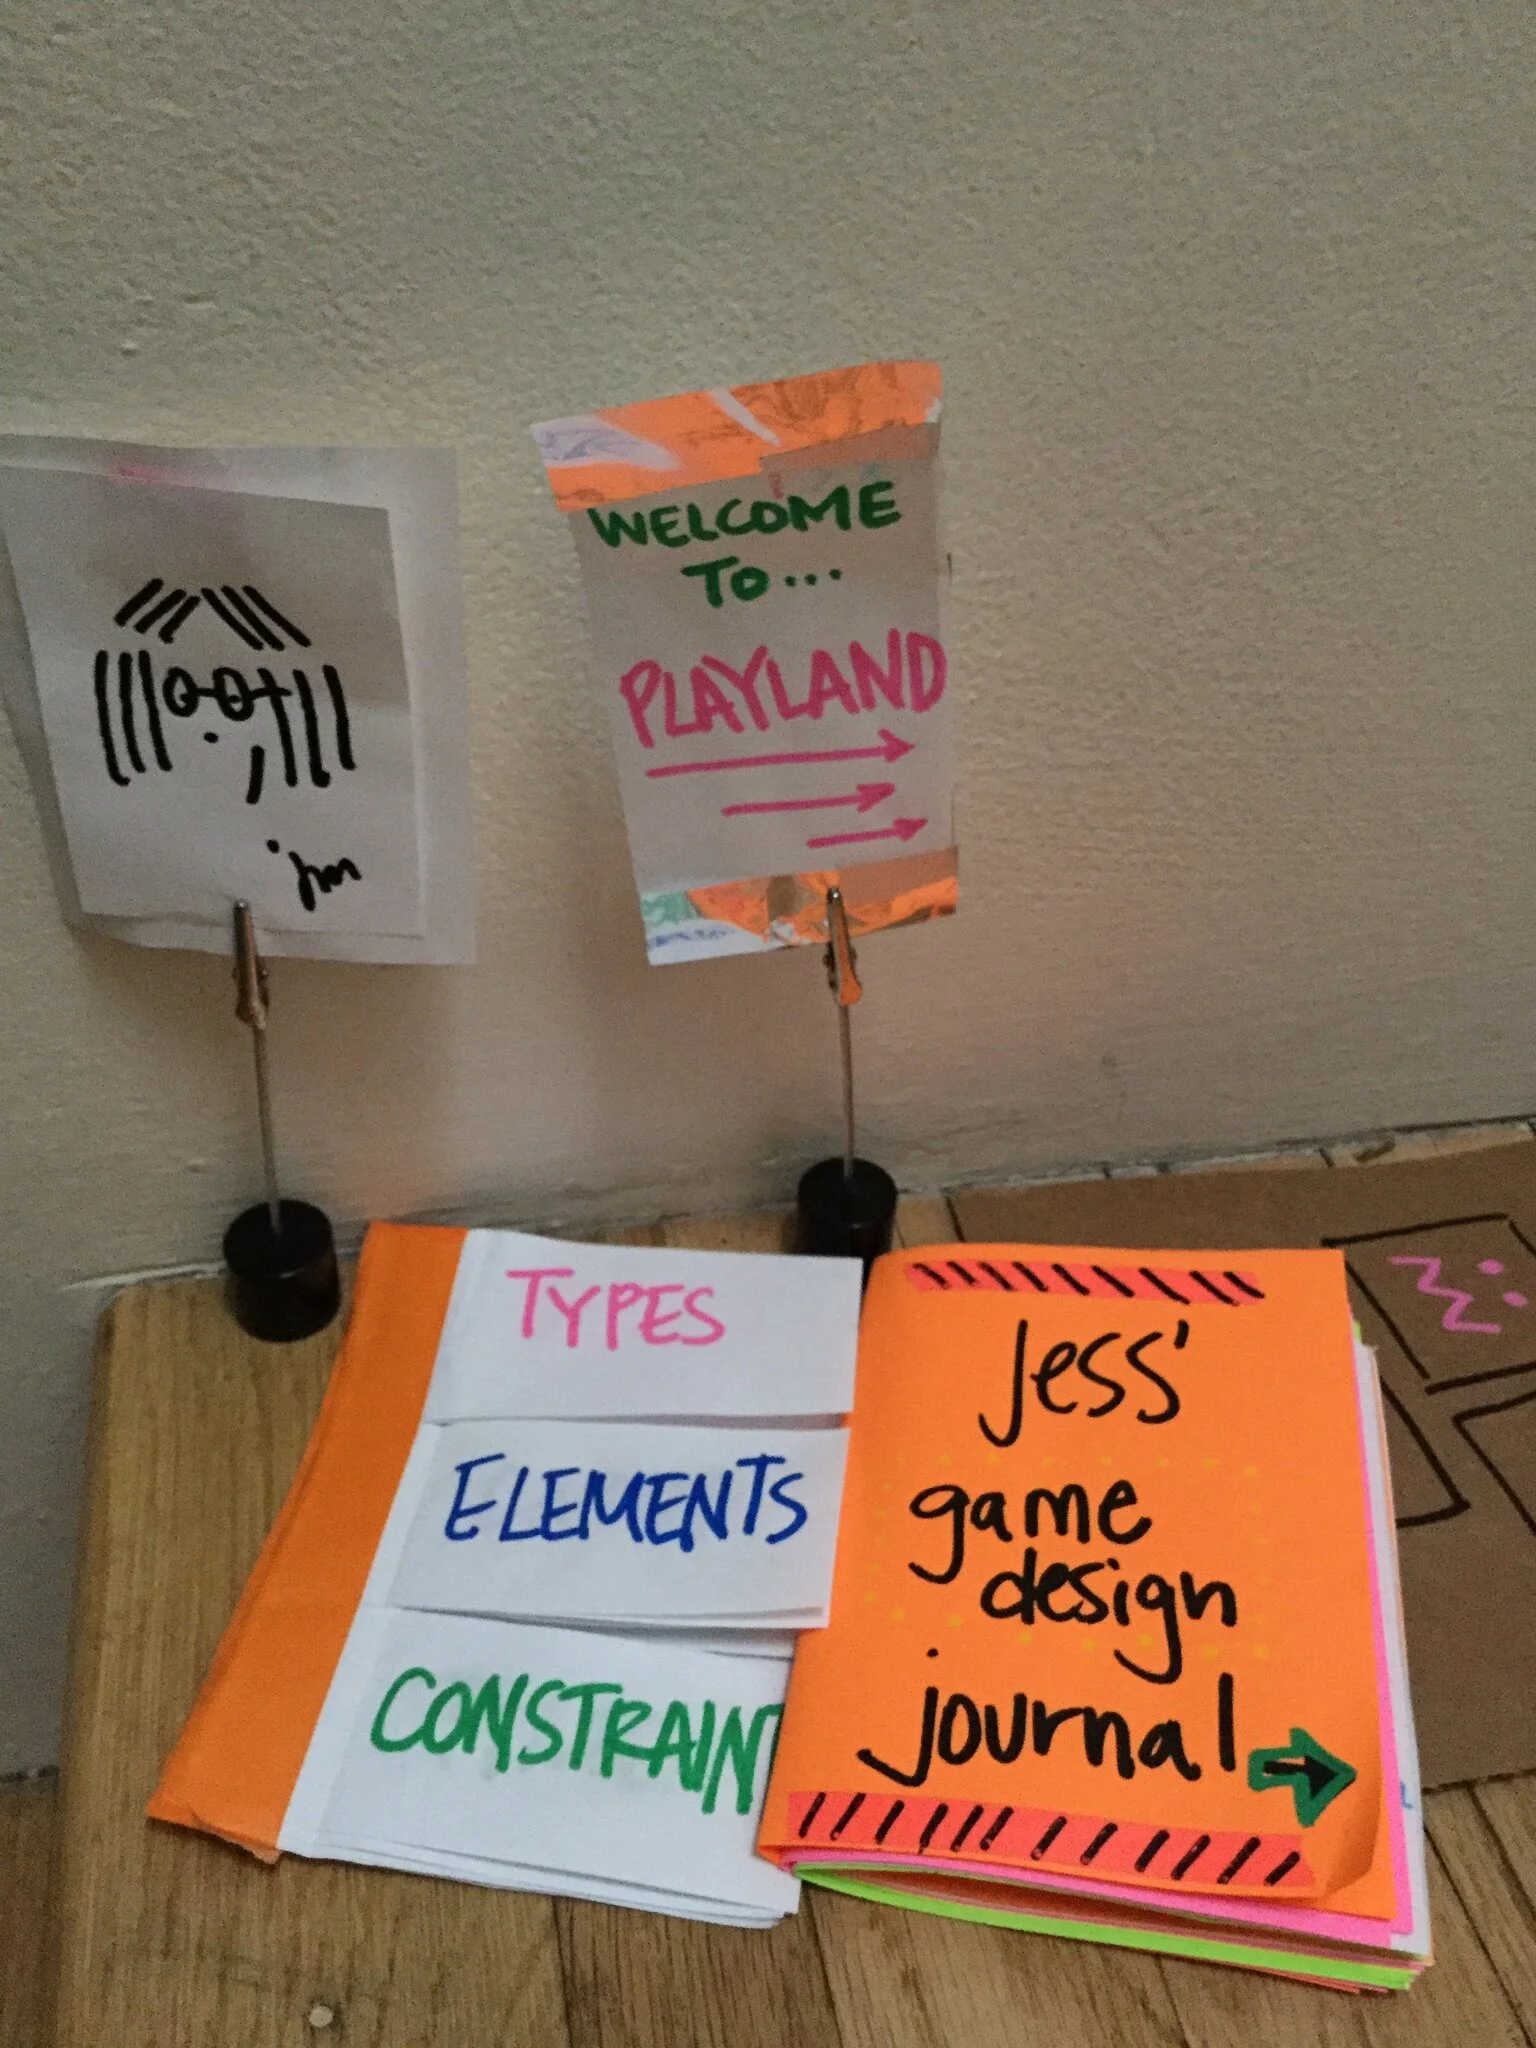 WELCOME
TO...
PLAYLAND
TYPES
ELEMENTS
CONSTRAIN
Jess'
game
design
journal